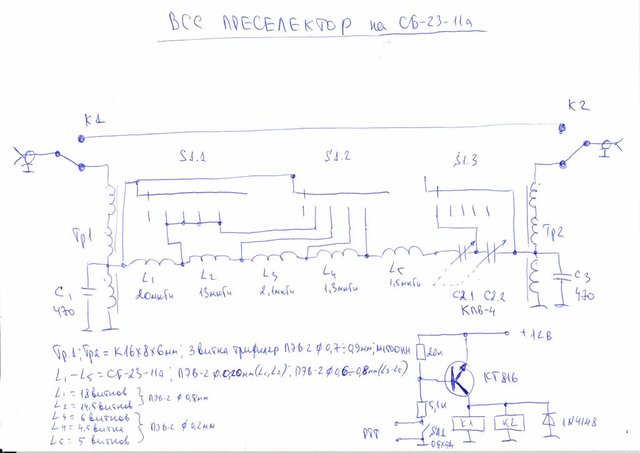 ВСС ПРЕСЕЛЕКТОР на СБ-23-11а
K1
K2
S1.1
S1.2
S1.3
Тр1
Тр2
C1
470
L1
20мкГн
L2
13мкГн
L3
2,1мкГн
L4
1,3мкГн
L5
1,5мкГн
C2.1 C2.2
КПВ-4
C3
470
Тр.1; Тр2 = К16х8х6мм; 3 витка трифиляр ПЭВ-2 ф 0,7÷0,9мм;
L1-L5 = СБ-23-11а; ПЭВ-2 ф 0,20мм(L1,L2); ПЭВ-2 ф 0,6÷0,8мм(L3-L5)
L1 = 18 витков
L2 = 14,5 витков
} ПЭВ-2 ф 0,8мм
L3 = 6 витков
L4 = 4,5 витка
L5 = 5 витков
} ПЭВ-2 ф 0,2мм
+12В
20п
КТ816
5,1к
SA1
PTT
K1
K2
1N4148